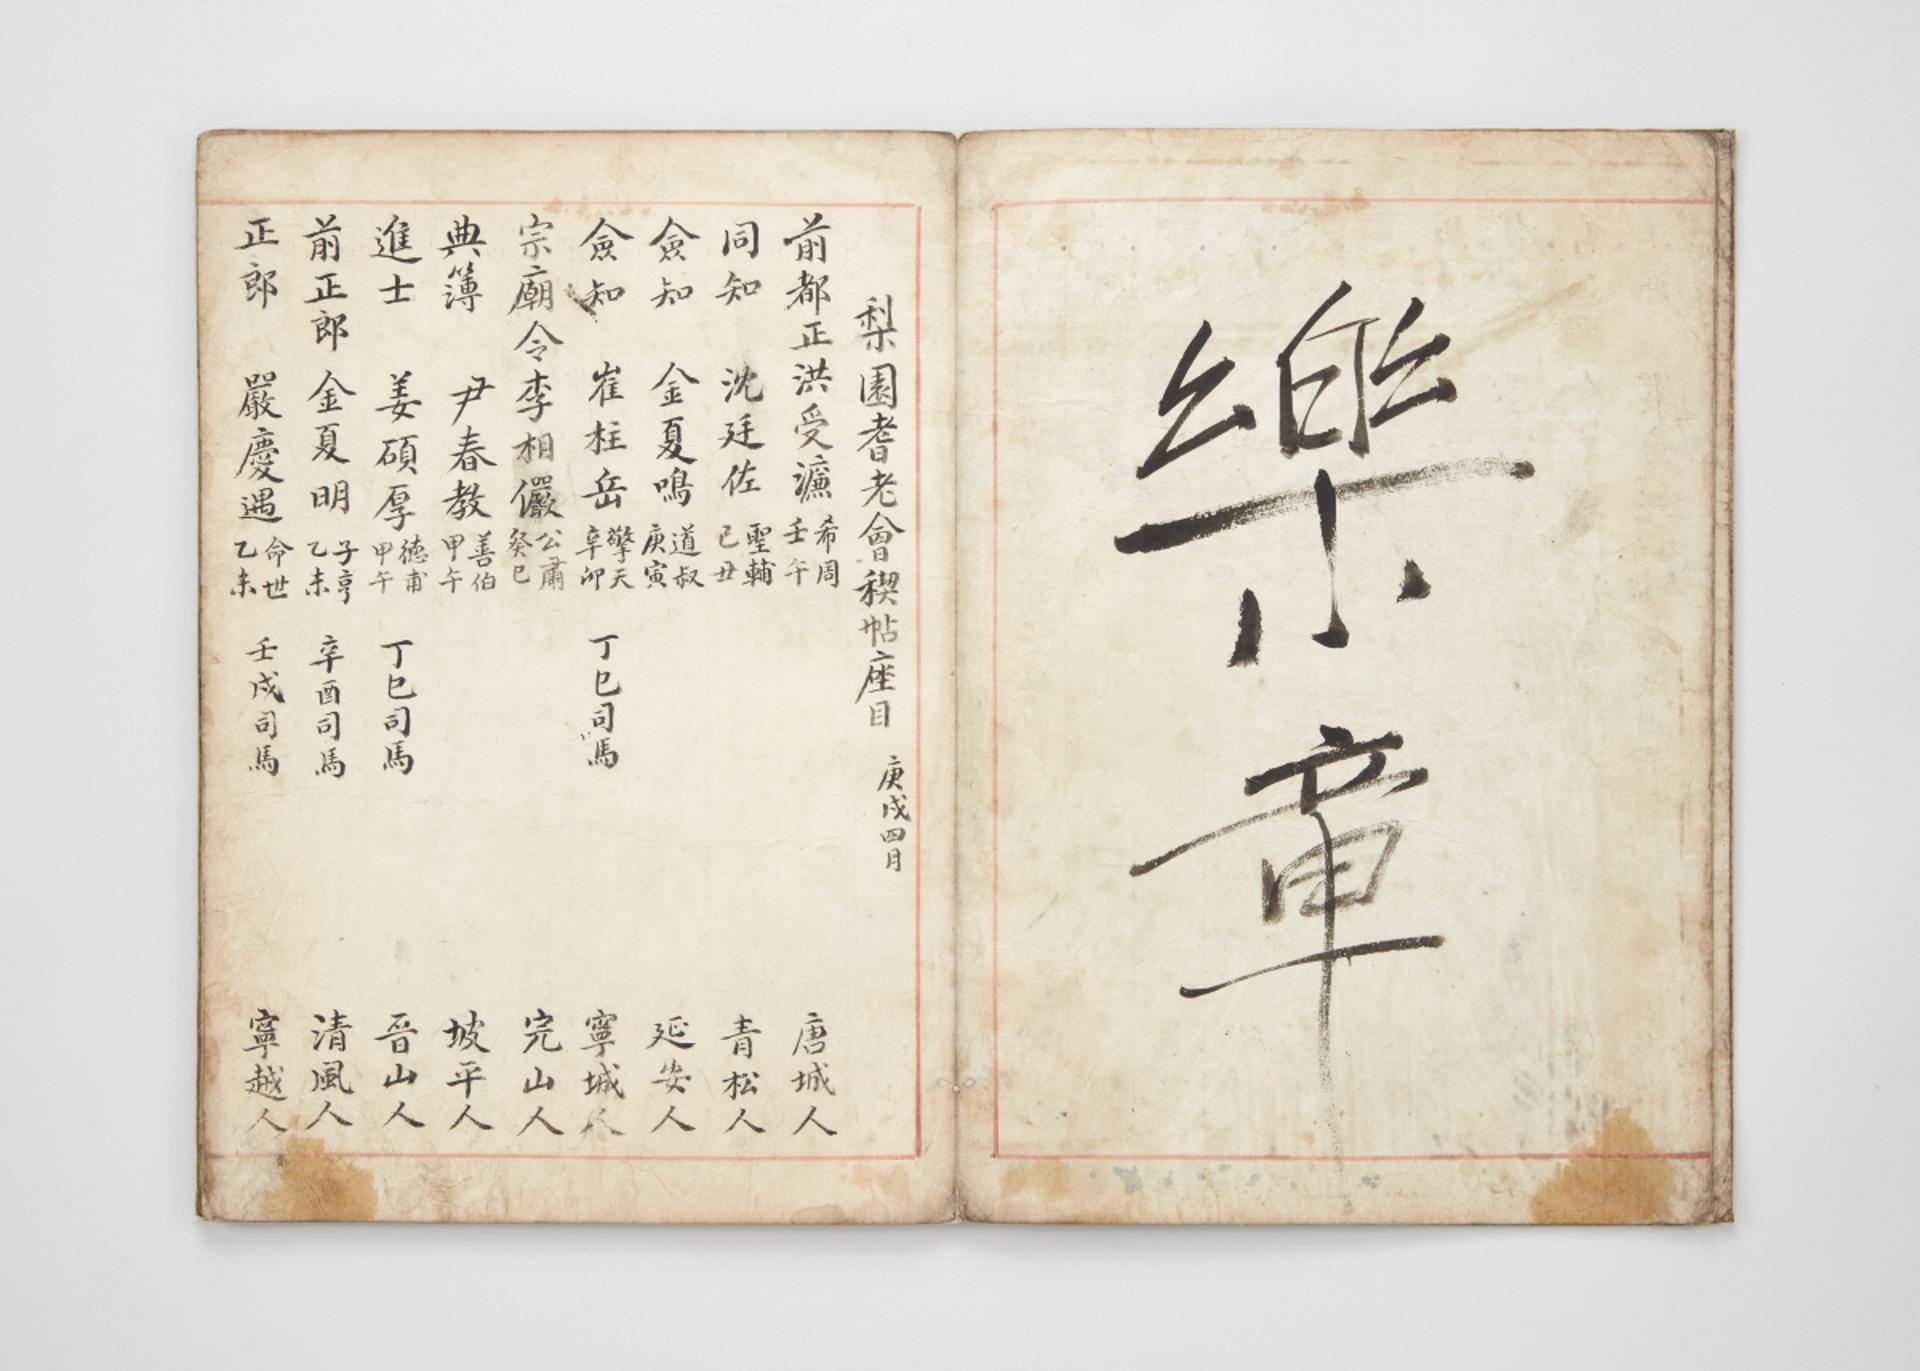 樂章
梨園耆老會稧帖座目 庚戌四月
前都正洪受濂 希周 壬午 唐城人
同知 沈廷佐 聖輔 己丑 青松人
僉知 金夏鳴 道叔 庚寅 延安人
僉知 崔柱岳 擎天 辛卯 丁巳司馬 寧城人
宗廟令李相儼 公肅 癸巳 完山人
典簿 尹春教 善伯 甲午 坡平人
進士 姜碩厚 德甫 甲午 丁巳司馬 晋山人
前正郎 金夏明 子亨 乙未 辛酉司馬 清風人
正郎 嚴慶遇 命世 乙未 壬戌司馬 寧越人